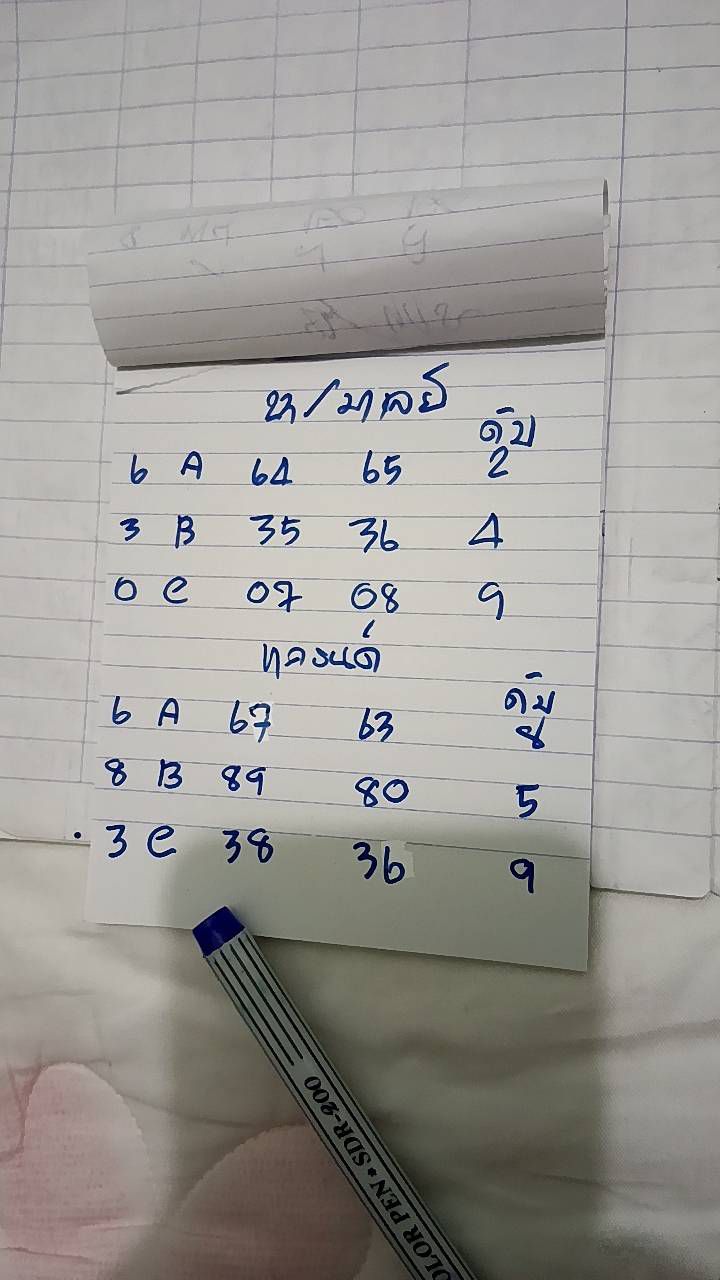 ฮา/มาเลย์
ดับ
6 A 64 65 2
3 B 35 36 4
0 C 07 08 9
ดับ
6 A 67 63 8
8 B 89 80 5
3 C 38 36 9
COLOR PEN • SDR-200